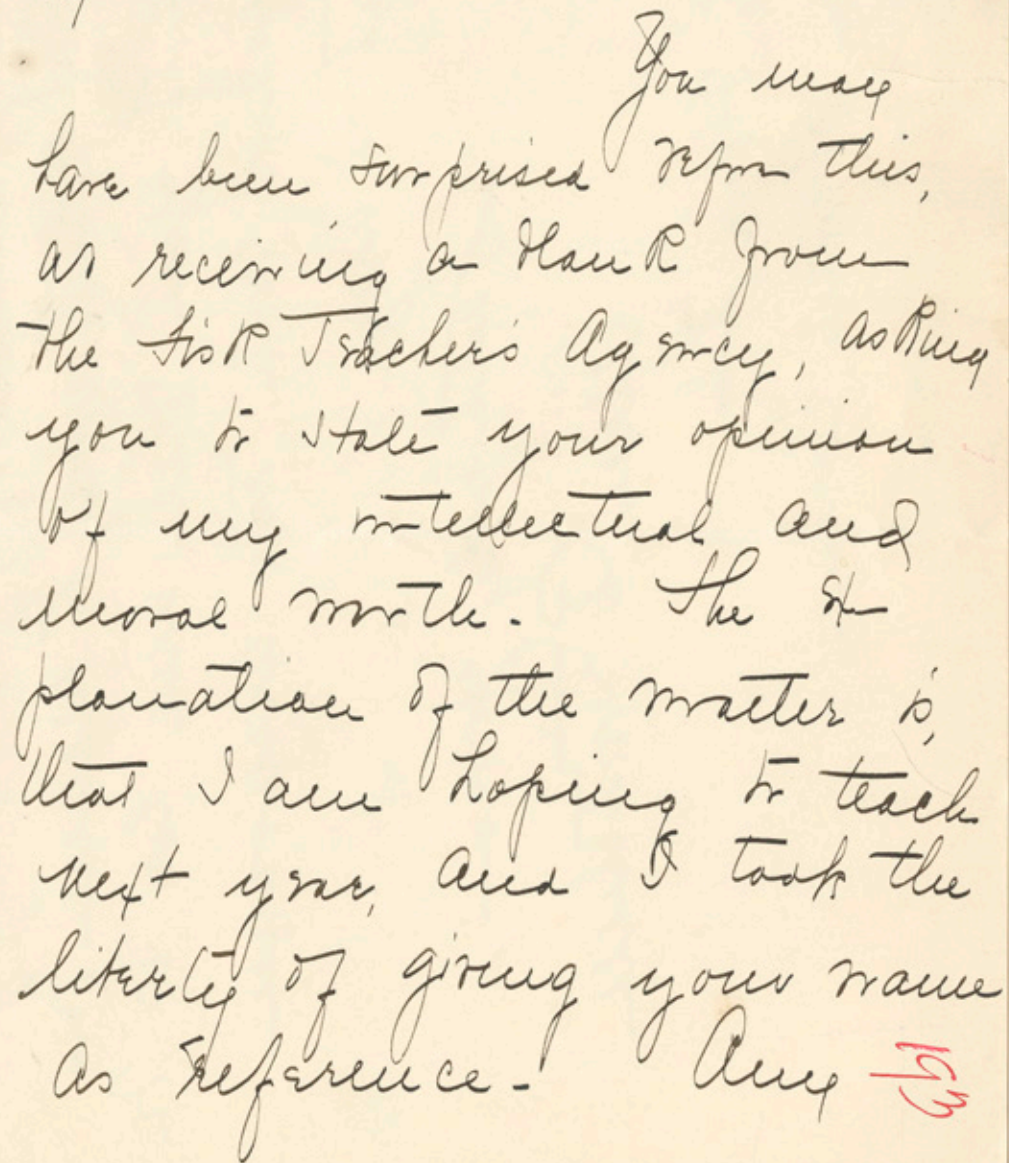 You may
have been surprised before this,
at receiving a blank from
the Fisk Teacher's Agency, asking
you to state your opinion
of my intellectual and
moral worth. The ex
planation of the matter is,
that I am hoping to teach
next year, and I took the
liberty of giving your name
as reference. Any
153